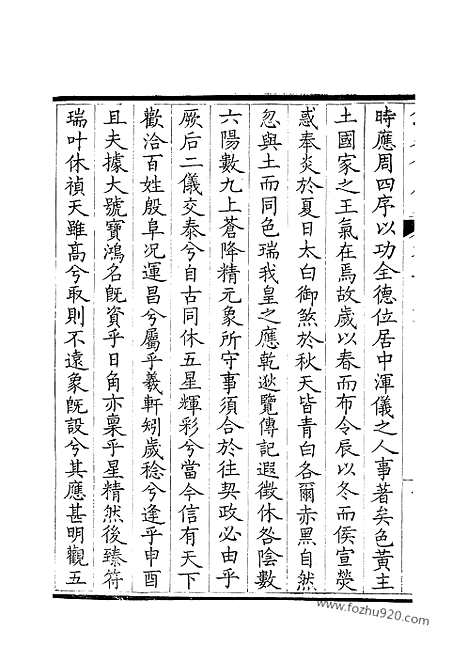 時應周四序以功全德位居中渾儀之人事著矣色黃主
土國家之王氣在焉故歲以春而布令辰以冬而侯宣熒
惑奉炎於夏日太白御煞於秋天皆青白各爾赤黑自然
忽與土而同色瑞我皇之應乾逖覽傳記遐徵休咎陰數
六陽數九上蒼降精元象所守事須合於往契政必由乎
厥后二儀交泰兮自古同休五星輝彩兮當今信有天下
歡洽百姓殷阜况運昌兮屬乎羲軒矧歲稔兮逢乎申酉
且夫據大號寶鴻名旣資乎日角亦稟乎星精然後臻符
瑞叶休禎天雖高兮取則不遠象旣設兮其應甚明觀五
www.fozhu920.com